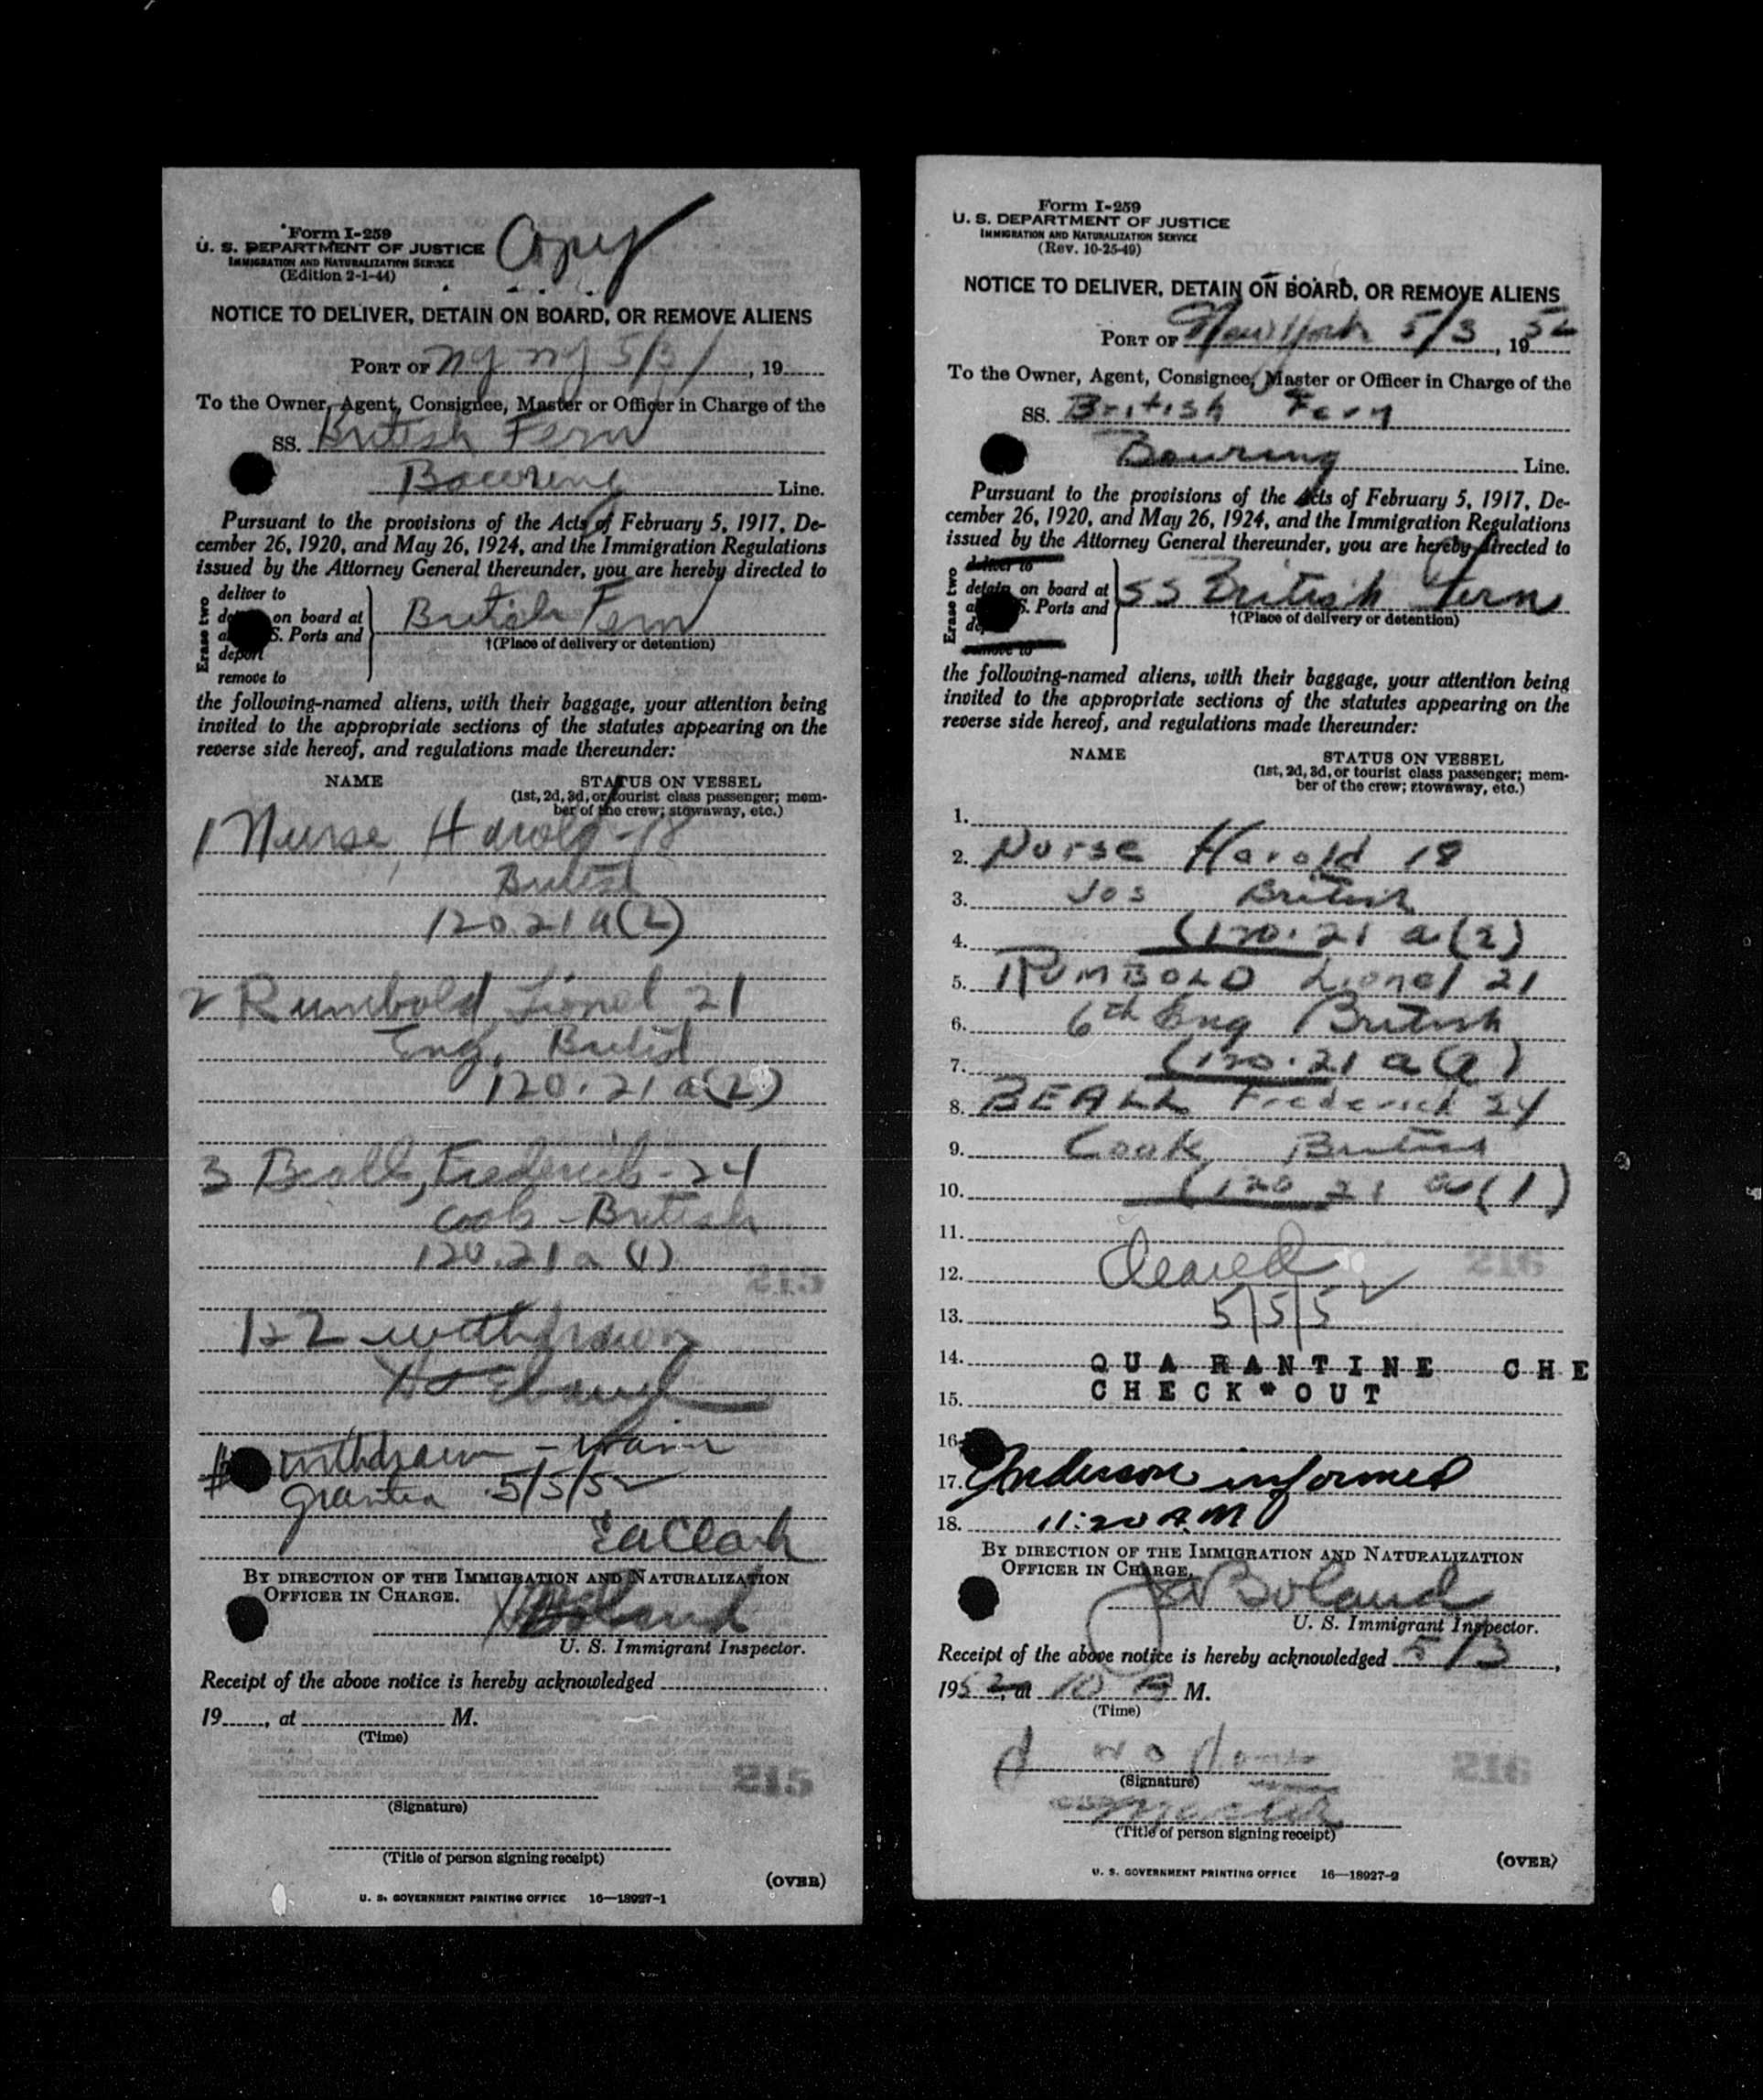 Form I-259
U. S. DEPARTMENT OF JUSTICE
IMMIGRATION AND NATURALIZATION SERVICE
(Edition 2-1-44)
Copy
NOTICE TO DELIVER, DETAIN ON BOARD, OR REMOVE ALIENS
PORT OF NY NY 5/3/, 19
To the Owner, Agent, Consignee, Master or Officer in Charge of the
SS. British Fern
Bowring Line.
Pursuant to the provisions of the Acts of February 5, 1917, De-
cember 26, 1920, and May 26, 1924, and the Immigration Regulations
issued by the Attorney General thereunder, you are hereby directed to
Erase two
deliver to
on board at
S. Ports and
deport
remove to
British Fern
†(Place of delivery or detention)
the following-named aliens, with their baggage, your attention being
invited to the appropriate sections of the statutes appearing on the
reverse side hereof, and regulations made thereunder:
NAME STATUS ON VESSEL
(1st, 2d, 3d, or tourist class passenger; mem-
ber of the crew; stowaway, etc.)
1 Nurse, Harold - 18
British
120.21 a(2)
2 Rumbold, Lionel 21
Eng. British
120.21 a(2)
3 Beall, Frederick - 24
Cook - British
120.21 a (1)
215
1 & 2 withdrawn
withdrawn -
granted 5/5/52
EA Clark
BY DIRECTION OF THE IMMIGRATION AND NATURALIZATION
OFFICER IN CHARGE.
Boland
U. S. Immigrant Inspector.
Receipt of the above notice is hereby acknowledged
19, at M.
(Time)
215
(Signature)
(Title of person signing receipt)
(OVER)
U. S. GOVERNMENT PRINTING OFFICE 16—18927-1
Form I-259
U. S. DEPARTMENT OF JUSTICE
IMMIGRATION AND NATURALIZATION SERVICE
(Rev. 10-25-49)
NOTICE TO DELIVER, DETAIN ON BOARD, OR REMOVE ALIENS
PORT OF New York 5/3, 1952
To the Owner, Agent, Consignee, Master or Officer in Charge of the
SS. British Fern
Bowring Line.
Pursuant to the provisions of the Acts of February 5, 1917, De-
cember 26, 1920, and May 26, 1924, and the Immigration Regulations
issued by the Attorney General thereunder, you are hereby directed to
Erase two
deliver to
detain on board at
S. Ports and
remove to
SS British Fern
†(Place of delivery or detention)
the following-named aliens, with their baggage, your attention being
invited to the appropriate sections of the statutes appearing on the
reverse side hereof, and regulations made thereunder:
NAME STATUS ON VESSEL
(1st, 2d, 3d, or tourist class passenger; mem-
ber of the crew; stowaway, etc.)
1.
2. Nurse Harold 18
3. Jos British
4. (120.21 a(2)
5. RUMBOLD Lionel 21
6. 6th Eng British
7. (120.21 a(2)
8. BEALL Frederick 24
9. Cook British
10. (120.21 a(1)
11.
12. Cleared
13. 5/5/52
216
14. QUARANTINE CHE
15. CHECK*OUT
16.
17. Anderson informed
18. 11:20 A.M
BY DIRECTION OF THE IMMIGRATION AND NATURALIZATION
OFFICER IN CHARGE.
Boland
U. S. Immigrant Inspector.
Receipt of the above notice is hereby acknowledged 5/3,
1952, at 10 A M.
(Time)
216
(Signature)
Master
(Title of person signing receipt)
(OVER)
U. S. GOVERNMENT PRINTING OFFICE 16—18927-2